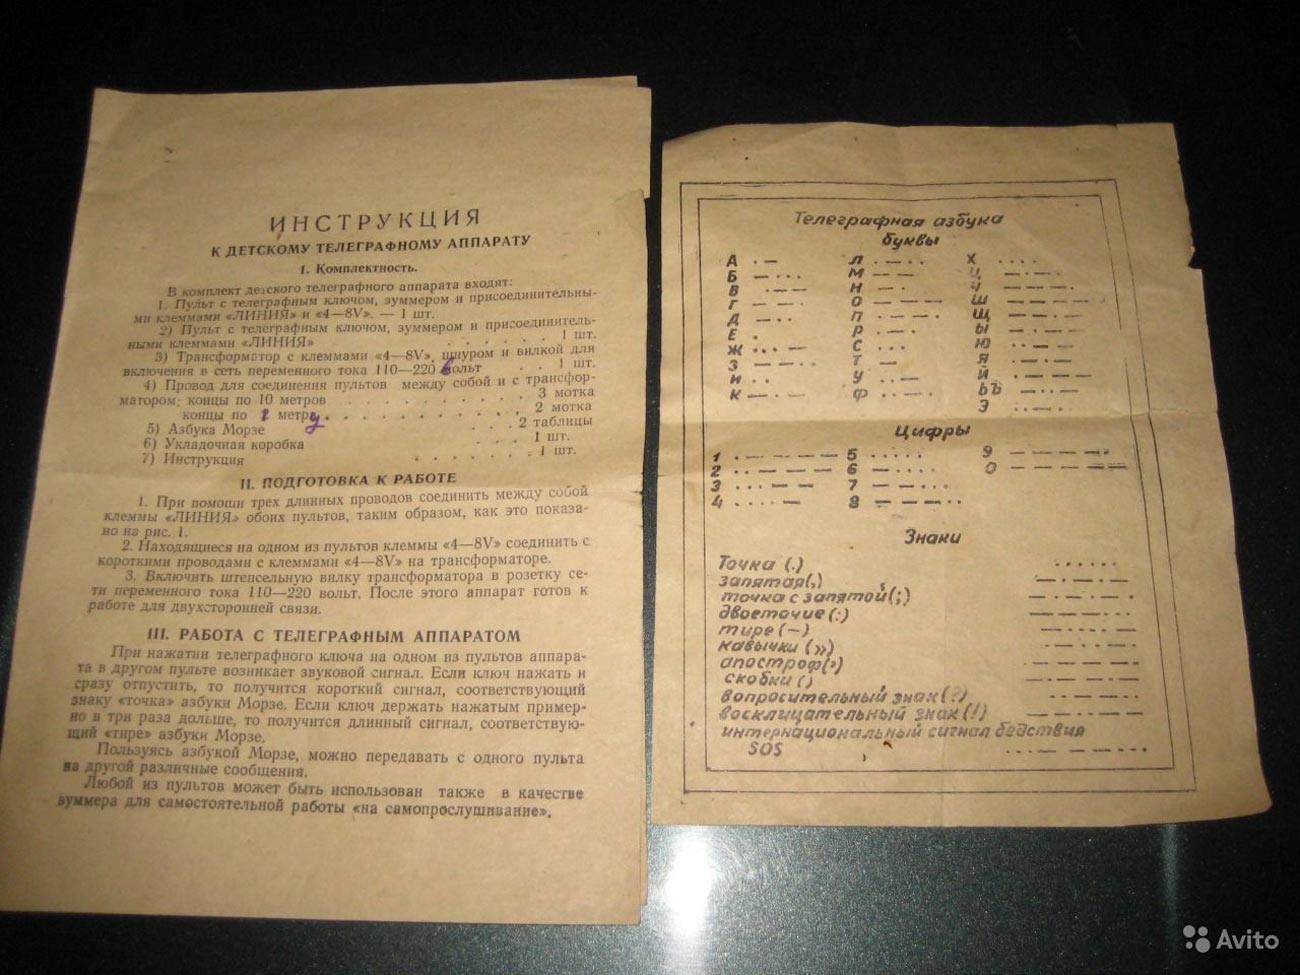 ИНСТРУКЦИЯ
К ДЕТСКОМУ ТЕЛЕГРАФНОМУ АППАРАТУ
I. Комплектность.
В комплект детского телеграфного аппарата входят:
1. Пульт с телеграфным ключом, зуммером и присоединительны-
ми клеммами «ЛИНИЯ» и «4—8V». — 1 шт.
2) Пульт с телеграфным ключом, зуммером и присоединитель-
ными клеммами «ЛИНИЯ» . . . . . . 1 шт.
3) Трансформатор с клеммами «4—8V», шнуром и вилкой для
включения в сеть переменного тока 110—220 вольт . . 1 шт.
4) Провод для соединения пультов между собой и с трансфор-
матором; концы по 10 метров . . . . . . . . . . 3 мотка
концы по 1 метру . . . . . . . . . . 2 мотка
5) Азбука Морзе . . . 2 таблицы
6) Укладочная коробка . . . . 1 шт.
7) Инструкция . . . . . . . 1 шт.
II. ПОДГОТОВКА К РАБОТЕ
1. При помощи трех длинных проводов соединить между собой
клеммы «ЛИНИЯ» обоих пультов, таким образом, как это показа-
но на рис. 1.
2. Находящиеся на одном из пультов клеммы «4—8V» соединить с
короткими проводами с клеммами «4—8V» на трансформаторе.
3. Включить штепсельную вилку трансформатора в розетку се-
ти переменного тока 110—220 вольт. После этого аппарат готов к
работе для двухсторонней связи.
III. РАБОТА С ТЕЛЕГРАФНЫМ АППАРАТОМ
При нажатии телеграфного ключа на одном из пультов аппара-
та в другом пульте возникает звуковой сигнал. Если ключ нажать и
сразу отпустить, то получится короткий сигнал, соответствующий
знаку «точка» азбуки Морзе. Если ключ держать нажатым пример-
но в три раза дольше, то получится длинный сигнал, соответствую-
щий «тире» азбуки Морзе.
Пользуясь азбукой Морзе, можно передавать с одного пульта
на другой различные сообщения.
Любой из пультов может быть использован также в качестве
зуммера для самостоятельной работы «на самопрослушивание».
Телеграфная азбука
буквы
А . — Л . — . . Х . . . .
Б — . . . М — — Ц — . — .
В . — — Н — . Ч — — — .
Г — — . О — — — Ш — — — —
Д — . . П . — — . Щ — — . —
Е . Р . — . Ы — . — —
Ж . . . — С . . . Ю . . — —
З — — . . Т — Я . — . —
И . . У . . — Й . — — —
К — . — Ф . . — . ЬЪ — . . —
Э . . — . .
Цифры
1 . — — — — 5 . . . . . 9 — — — — .
2 . . — — — 6 — . . . . 0 — — — — —
3 . . . — — 7 — — . . .
4 . . . . — 8 — — — . .
Знаки
Точка (.) . . . . . .
запятая(,) . — . — . —
точка с запятой(;)
двоеточие (:) — — — . . .
тире (—)
кавычки (»)
апостроф(')
скобки ()
вопросительный знак(?)
восклицательный знак(!)
интернациональный сигнал бедствия
SOS . . . — — — . . .
Avito